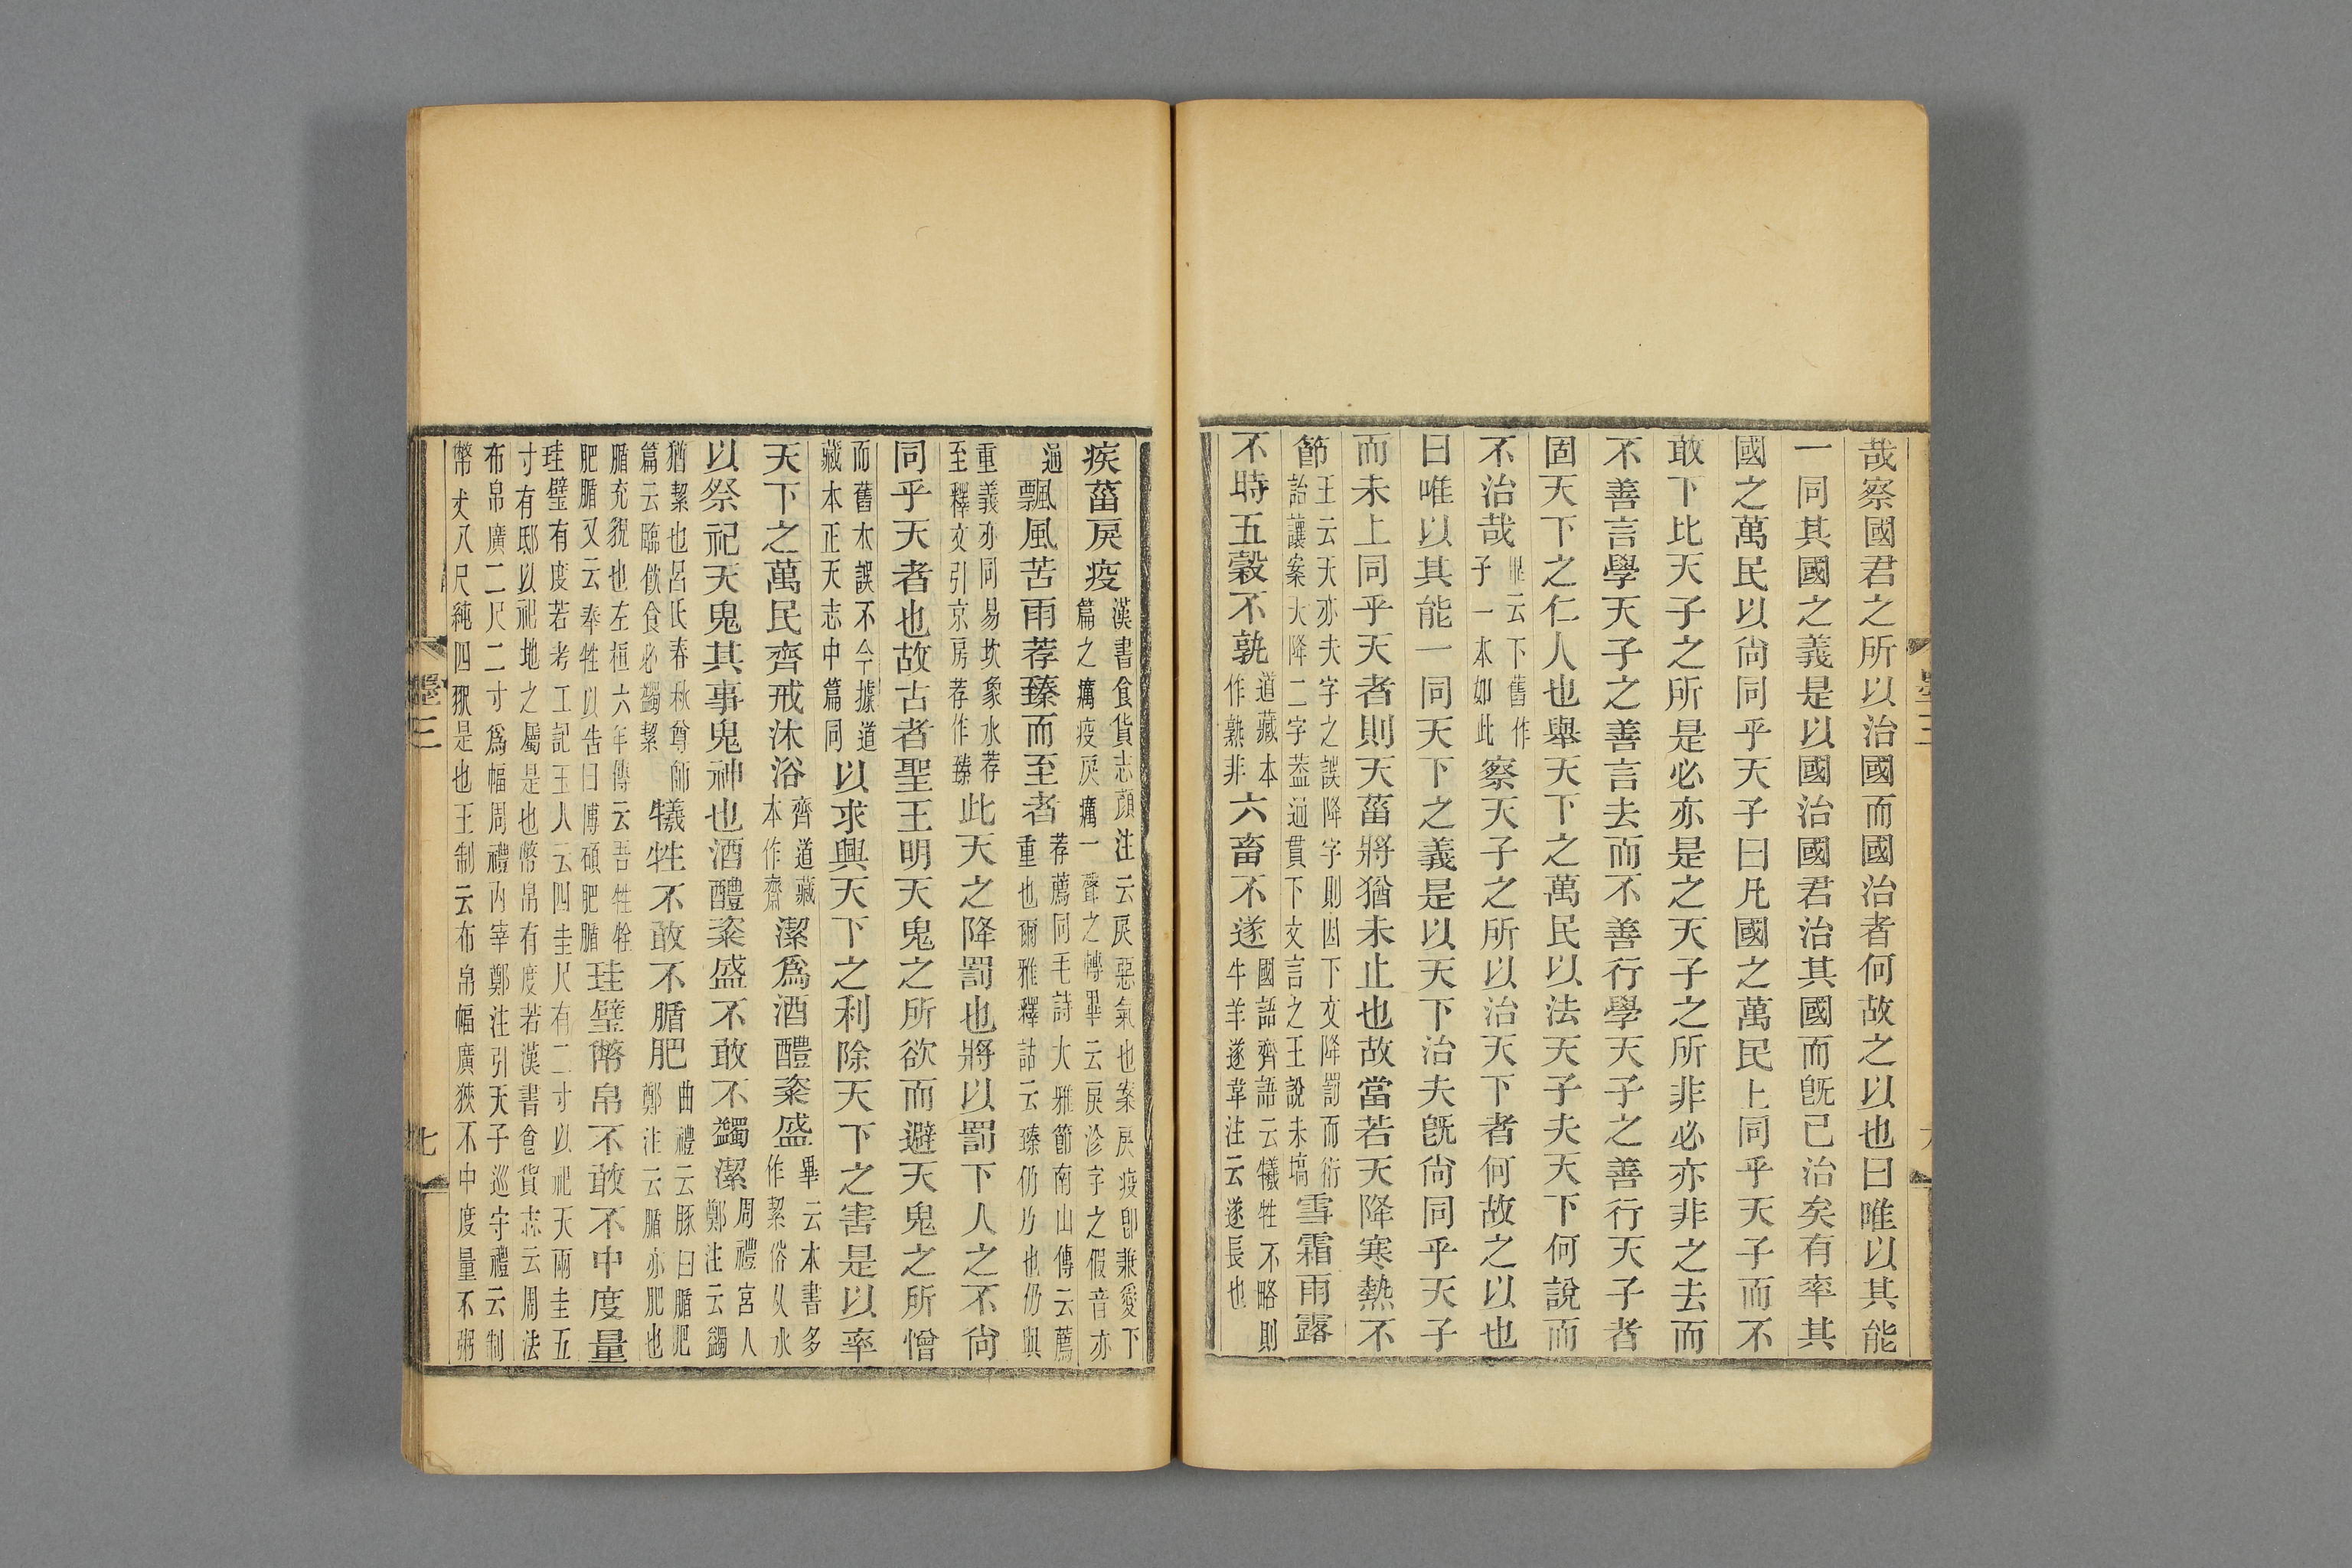 哉察國君之所以治國而國治者何故之以也曰唯以其能
一同其國之義是以國治國君治其國而旣已治矣有率其
國之萬民以尙同乎天子曰凡國之萬民上同乎天子而不
敢下比天子之所是必亦是之天子之所非必亦非之去而
不善言學天子之善言去而不善行學天子之善行天子者
固天下之仁人也舉天下之萬民以法天子夫天下何說而
不治哉畢云下舊作子一本如此察天子之所以治天下者何故之以也
曰唯以其能一同天下之義是以天下治夫旣尙同乎天子
而未上同乎天者則天菑將猶未止也故當若天降寒熱不
節王云天亦夫字之誤降字則因下文降罰而衍詒讓案大降二字葢通貫下文言之王說未塙雪霜雨露
不時五穀不孰道藏本作熟非六畜不遂國語齊語云犧牲不略則牛羊遂韋注云遂長也
疾菑戾疫漢書食貨志顏注云戾惡氣也案戾疫卽兼愛下篇之癘疫戾癘一聲之轉畢云戾沴字之假音亦
通飄風苦雨荐臻而至者荐薦同毛詩大雅節南山傳云薦重也爾雅釋詁云臻仍乃也仍與
重義亦同易坎象水荐至釋文引京房荐作臻此天之降罰也將以罰下人之不尙
同乎天者也故古者聖王明天鬼之所欲而避天鬼之所憎
而舊本誤不今據道藏本正天志中篇同以求興天下之利除天下之害是以率
天下之萬民齊戒沐浴齊道藏本作齋潔爲酒醴粢盛畢云本書多作絜俗从水
以祭祀天鬼其事鬼神也酒醴粢盛不敢不蠲潔周禮宮人鄭注云蠲
猶絜也呂氏春秋尊師篇云臨飲食必蠲絜犧牲不敢不腯肥曲禮云豚曰腯肥鄭注云腯亦肥也
腯充貌也左桓六年傳云吾牲牷肥腯又云奉牲以告曰博碩肥腯珪璧幣帛不敢不中度量
珪璧有度若考工記玉人云四圭尺有二寸以祀天兩圭五寸有邸以祀地之屬是也幣帛有度若漢書食貨志云周法
布帛廣二尺二寸爲幅周禮內宰鄭注引天子巡守禮云制幣丈八尺純四㧁是也王制云布帛幅廣狹不中度量不粥
墨三
七